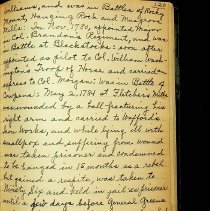 Williams, and was in Battles of Rocky
Mount, Hanging Rock and Musgrove
Mills. In Nov, 1780, appointed Major
in Col. Brandons Regiment, and was
in Battle at Blackstocks: soon after
appointed as pilot to Col. William Wash-
ington's Troop of Horse and carried
express to Col. Morgan: was in Battle of
Cowpens: May 2, 1781 at Fletcher's Mills
was wounded by a ball fracturing his
right arm and carried to Wofford's
Iron Works, and while lying ill with
smallpox and suffering from wound
was taken prisoner and condemned
to be hanged in 15 months as a rebel
but gained a respite, was taken to
Ninety Six and held in jail as prisoner
until a few days before General Greene